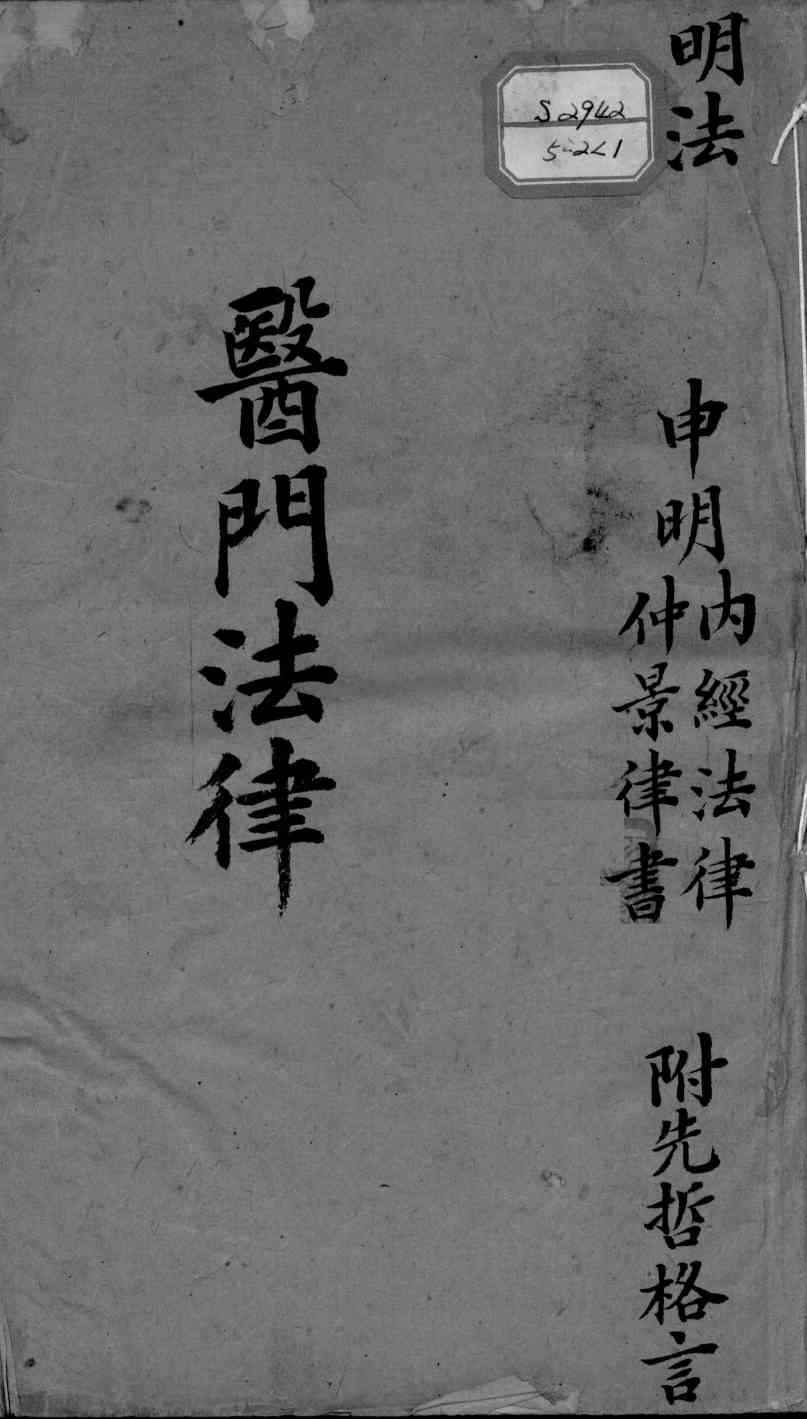 明法
申明
内經法律
仲景律書
附先哲格言
醫門法律
S2942
5-2<1